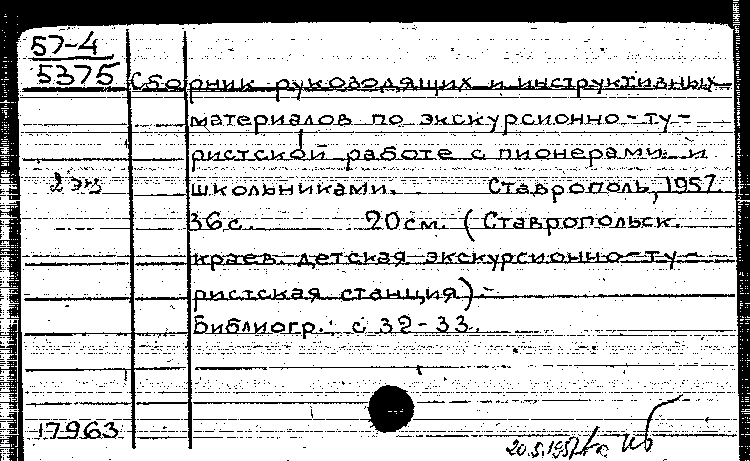 57-4
5375
Сборник руководящих и инструктивных
материалов по экскурсионно-ту-
ристской работе с пионерами и
школьниками. Ставрополь, 1957.
2 экз
36с. 20см. (Ставропольск.
краев. детская экскурсионно-ту-
ристская станция).-
Библиогр.: с 32-33.
17963
20.5.1957г.